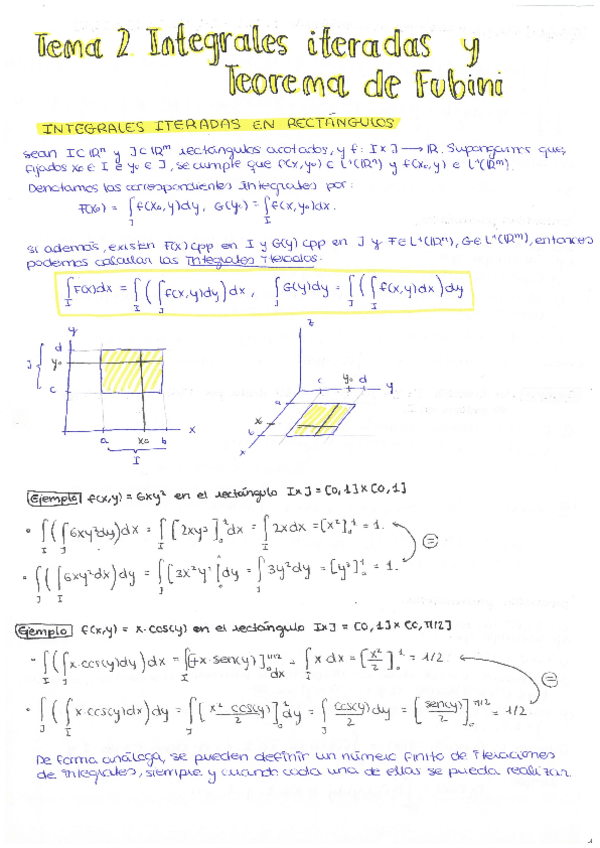 Tema 2 Integrales iteradas y
Teorema de Fubini
INTEGRALES ITERADAS EN RECTÁNGULOS
Sean I⊂ℝⁿ y J⊂ℝᵐ rectángulos acotados, y f: I×J → ℝ. Supongamos que,
fijados x₀ ∈ I e y₀ ∈ J, se cumple que f(x,y₀) ∈ L¹(ℝⁿ) y f(x₀,y) ∈ L¹(ℝᵐ).
Denotamos las correspondientes integrales por:
F(x₀) = ∫_J f(x₀,y)dy, G(y₀) = ∫_I f(x,y₀)dx.
Si además, existen F(x) cpp en I y G(y) cpp en J y F∈L¹(ℝⁿ), G∈L¹(ℝᵐ), entonces
podemos calcular las integrales iteradas:
∫_I F(x)dx = ∫_I (∫_J f(x,y)dy)dx, ∫_J G(y)dy = ∫_J (∫_I f(x,y)dx)dy
y
d
J
y₀
c
a
x₀
b
x
I
z
c
y₀
d
y
a
x₀
b
x
Ejemplo f(x,y) = 6xy² en el rectángulo I×J = [0,1]×[0,1]
• ∫_I (∫_J 6xy²dy)dx = ∫_I [2xy³]₀¹ dx = ∫_I 2xdx = [x²]₀¹ = 1.
=
• ∫_J (∫_I 6xy²dx)dy = ∫_J [3x²y²]₀¹ dy = ∫_J 3y²dy = [y³]₀¹ = 1.
Ejemplo f(x,y) = x·cos(y) en el rectángulo I×J = [0,1]×[0,π/2]
• ∫_I (∫_J x·cos(y)dy)dx = ∫_I [x·sen(y)]₀^{π/2} dx = ∫_I x dx = [x²/2]₀¹ = 1/2
=
• ∫_J (∫_I x·cos(y)dx)dy = ∫_J [x² cos(y)/2]₀¹ dy = ∫_J cos(y)/2 dy = [sen(y)/2]₀^{π/2} = 1/2
De forma análoga, se pueden definir un número finito de iteraciones
de integrales, siempre y cuando cada una de ellas se pueda realizar.